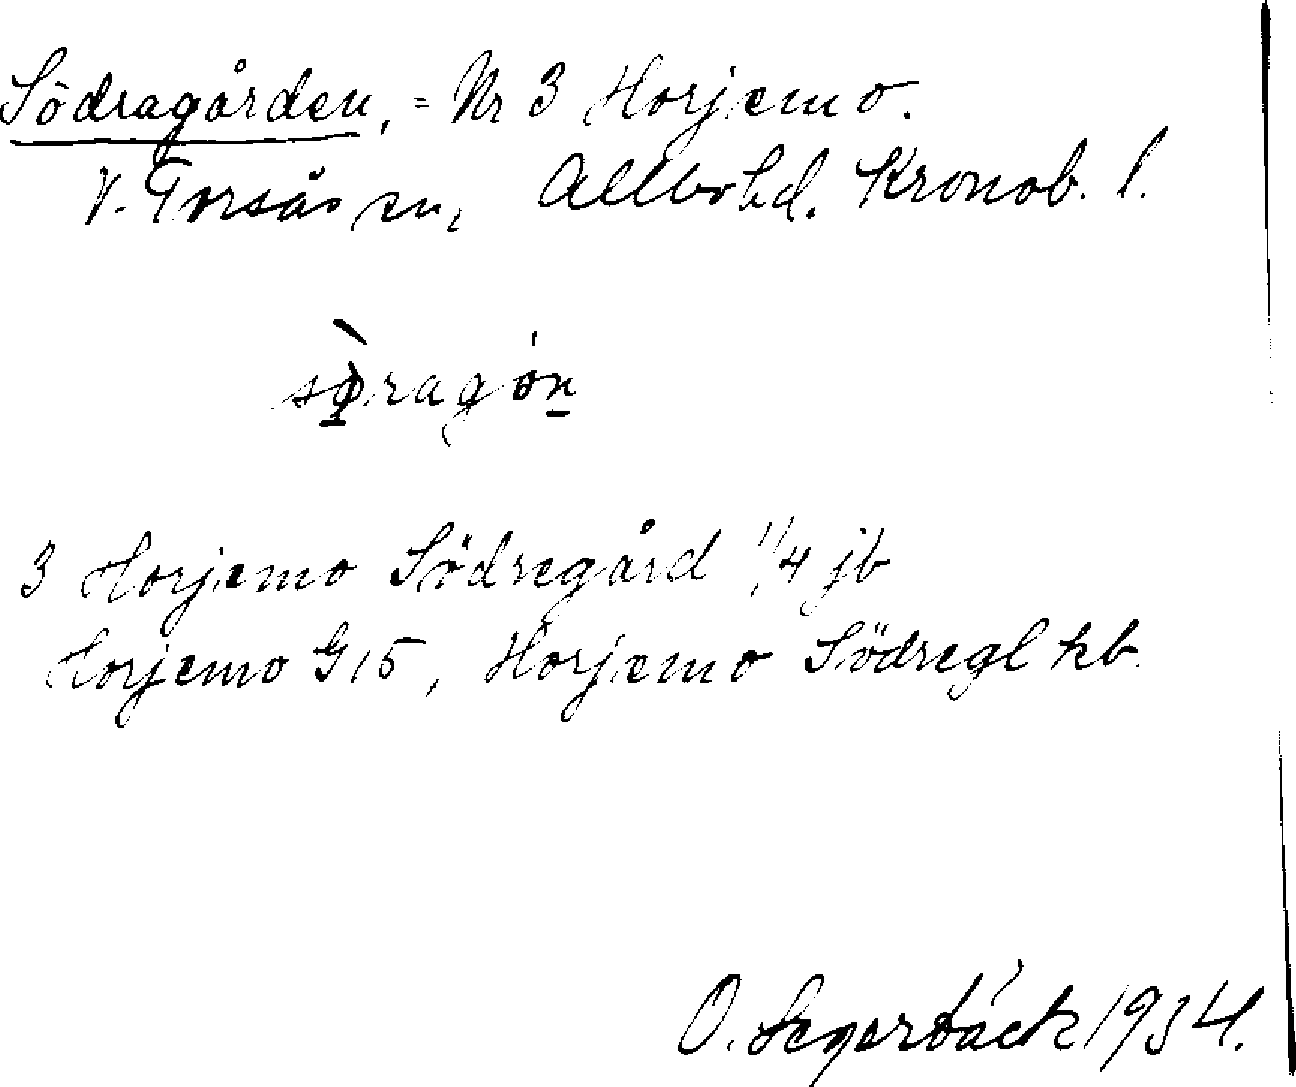 Södragården, = Nr 3 Horjemo.
V. Torsås sn, Allbo hd. Kronob. l.
sǫ̀ragón
3 Horjemo Södregård 1/4 jb
Horjemo G 15, Horjemo Södregl kb.
O. Segerbäck 1934.